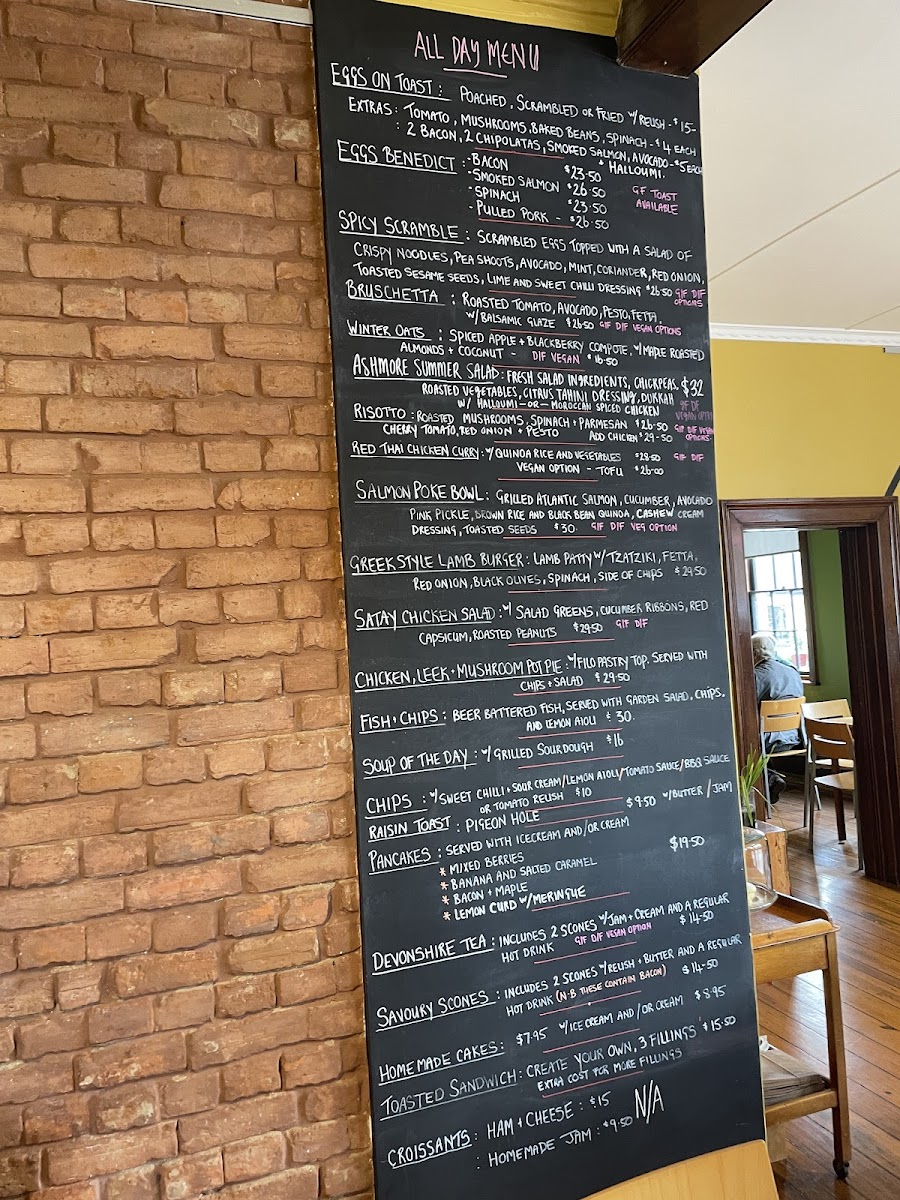 ALL DAY MENU
EGGS ON TOAST : POACHED, SCRAMBLED OR FRIED W/ RELISH - $15-
EXTRAS : TOMATO, MUSHROOMS, BAKED BEANS, SPINACH - $4 EACH
: 2 BACON, 2 CHIPOLATAS, SMOKED SALMON, AVOCADO - $5 EACH
+ HALLOUMI.
EGGS BENEDICT : - BACON $23.50
- SMOKED SALMON $26.50
- SPINACH $23.50
- PULLED PORK - $26.50
GF TOAST
AVAILABLE
SPICY SCRAMBLE : SCRAMBLED EGGS TOPPED WITH A SALAD OF
CRISPY NOODLES, PEA SHOOTS, AVOCADO, MINT, CORIANDER, RED ONION,
TOASTED SESAME SEEDS, LIME AND SWEET CHILLI DRESSING $26.50 GIF DIF
OPTIONS
BRUSCHETTA : ROASTED TOMATO, AVOCADO, PESTO, FETTA,
W/ BALSAMIC GLAZE $26.50 GIF DIF VEGAN OPTIONS
WINTER OATS : SPICED APPLE + BLACKBERRY COMPOTE, W/ MAPLE ROASTED
ALMONDS + COCONUT - DIF VEGAN $16.50
ASHMORE SUMMER SALAD : FRESH SALAD INGREDIENTS, CHICKPEAS, $32
ROASTED VEGETABLES, CITRUS TAHINI DRESSING, DUKKAH
W/ HALLOUMI - OR - MOROCCAN SPICED CHICKEN GF DF
VEGAN OPTION
RISOTTO : ROASTED MUSHROOMS, SPINACH + PARMESAN $26.50
CHERRY TOMATO, RED ONION + PESTO ADD CHICKEN $29.50 GIF DIF VEGAN
OPTIONS
RED THAI CHICKEN CURRY : W/ QUINOA RICE AND VEGETABLES $28.50 GIF DIF
VEGAN OPTION - TOFU $26.00
SALMON POKE BOWL : GRILLED ATLANTIC SALMON, CUCUMBER, AVOCADO
PINK PICKLE, BROWN RICE AND BLACK BEAN QUINOA, CASHEW CREAM
DRESSING, TOASTED SEEDS $30. GIF DIF VEG OPTION
GREEK STYLE LAMB BURGER : LAMB PATTY W/ TZATZIKI, FETTA,
RED ONION, BLACK OLIVES, SPINACH, SIDE OF CHIPS $29.50
SATAY CHICKEN SALAD : W/ SALAD GREENS, CUCUMBER RIBBONS, RED
CAPSICUM, ROASTED PEANUTS $29.50 GIF DIF
CHICKEN, LEEK + MUSHROOM POT PIE : W/ FILO PASTRY TOP, SERVED WITH
CHIPS + SALAD $29.50
FISH + CHIPS : BEER BATTERED FISH, SERVED WITH GARDEN SALAD, CHIPS,
AND LEMON AIOLI $30.
SOUP OF THE DAY : W/ GRILLED SOURDOUGH $16
CHIPS : W/ SWEET CHILLI + SOUR CREAM/LEMON AIOLI/TOMATO SAUCE/BBQ SAUCE
OR TOMATO RELISH $10
RAISIN TOAST : PIGEON HOLE $9.50 W/ BUTTER / JAM
PANCAKES : SERVED WITH ICECREAM AND/OR CREAM
* MIXED BERRIES $19.50
* BANANA AND SALTED CARAMEL
* BACON + MAPLE
* LEMON CURD W/ MERINGUE
DEVONSHIRE TEA : INCLUDES 2 SCONES W/ JAM + CREAM AND A REGULAR
HOT DRINK GIF DIF VEGAN OPTION $14.50
SAVOURY SCONES : INCLUDES 2 SCONES W/ RELISH + BUTTER AND A REGULAR
HOT DRINK (N.B THESE CONTAIN BACON) $14.50
HOMEMADE CAKES : $7.95 W/ ICE CREAM AND/OR CREAM $8.95
TOASTED SANDWICH : CREATE YOUR OWN, 3 FILLINGS $15.50
EXTRA COST FOR MORE FILLINGS
CROISSANTS : HAM + CHEESE : $15
: HOMEMADE JAM : $9.50 N/A